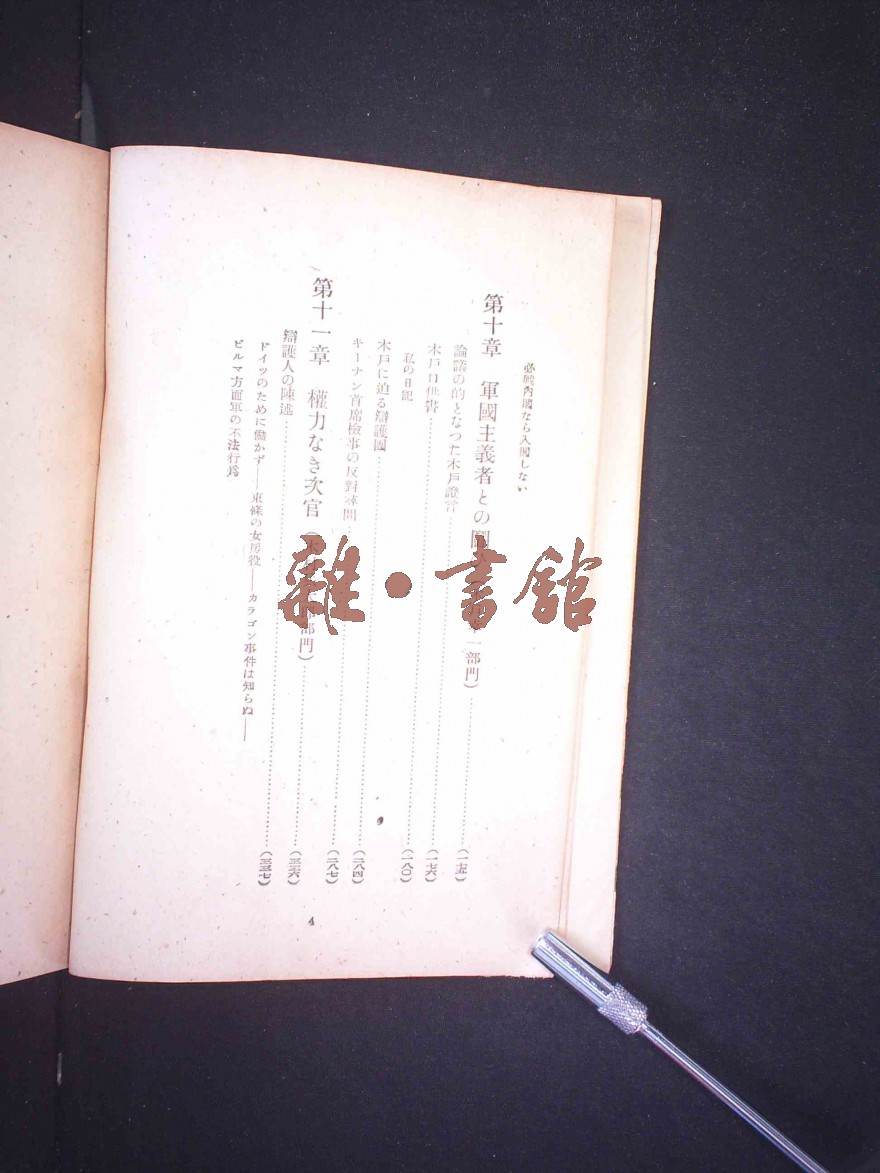 必戰內閣なら入閣しない
第十章 軍國主義者との 一部門)
論議の的となつた木戶證言 (一七五)
木戶口供書 (一七六)
私の日記 (一八〇)
木戶に迫る辯護團 (二八四)
キーナン首席檢事の反對訊問 (二八七)
第十一章 權力なき次官( 部門) (三三六)
辯護人の陳述 (三三七)
ドイツのために働かず——東條の女房役——カラゴン事件は知らぬ——
ビルマ方面軍の不法行爲
4
雜・書館